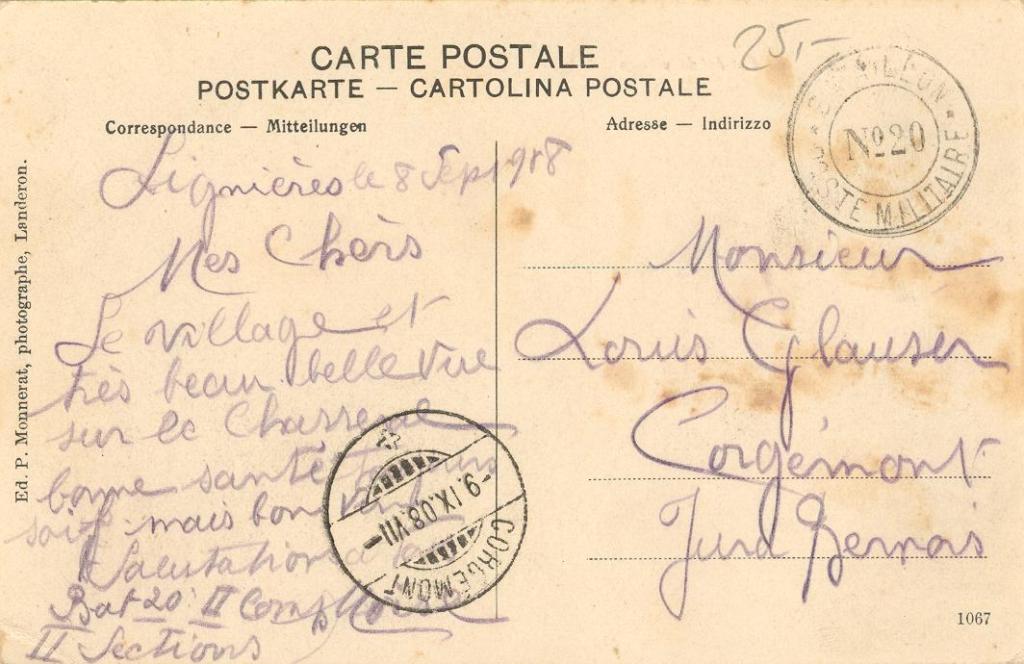 CARTE POSTALE
POSTKARTE — CARTOLINA POSTALE
Correspondance — Mitteilungen
Adresse — Indirizzo
25,-
BATAILLON
No 20
POSTE MILITAIRE
Lignières le 8 Sept 1908
Mes Chers
Le village et
très beau belle vue
sur le Chasseral
bonne santé toujours
soif mais bon
Salutation
Bat 20 II Comp
II Sections
Monsieur
Louis Glauser
Corgémont
Jura Bernois
-9.IX.08.VII-
CORGÉMONT
Ed. P. Monnerat, photographe, Landeron.
1067